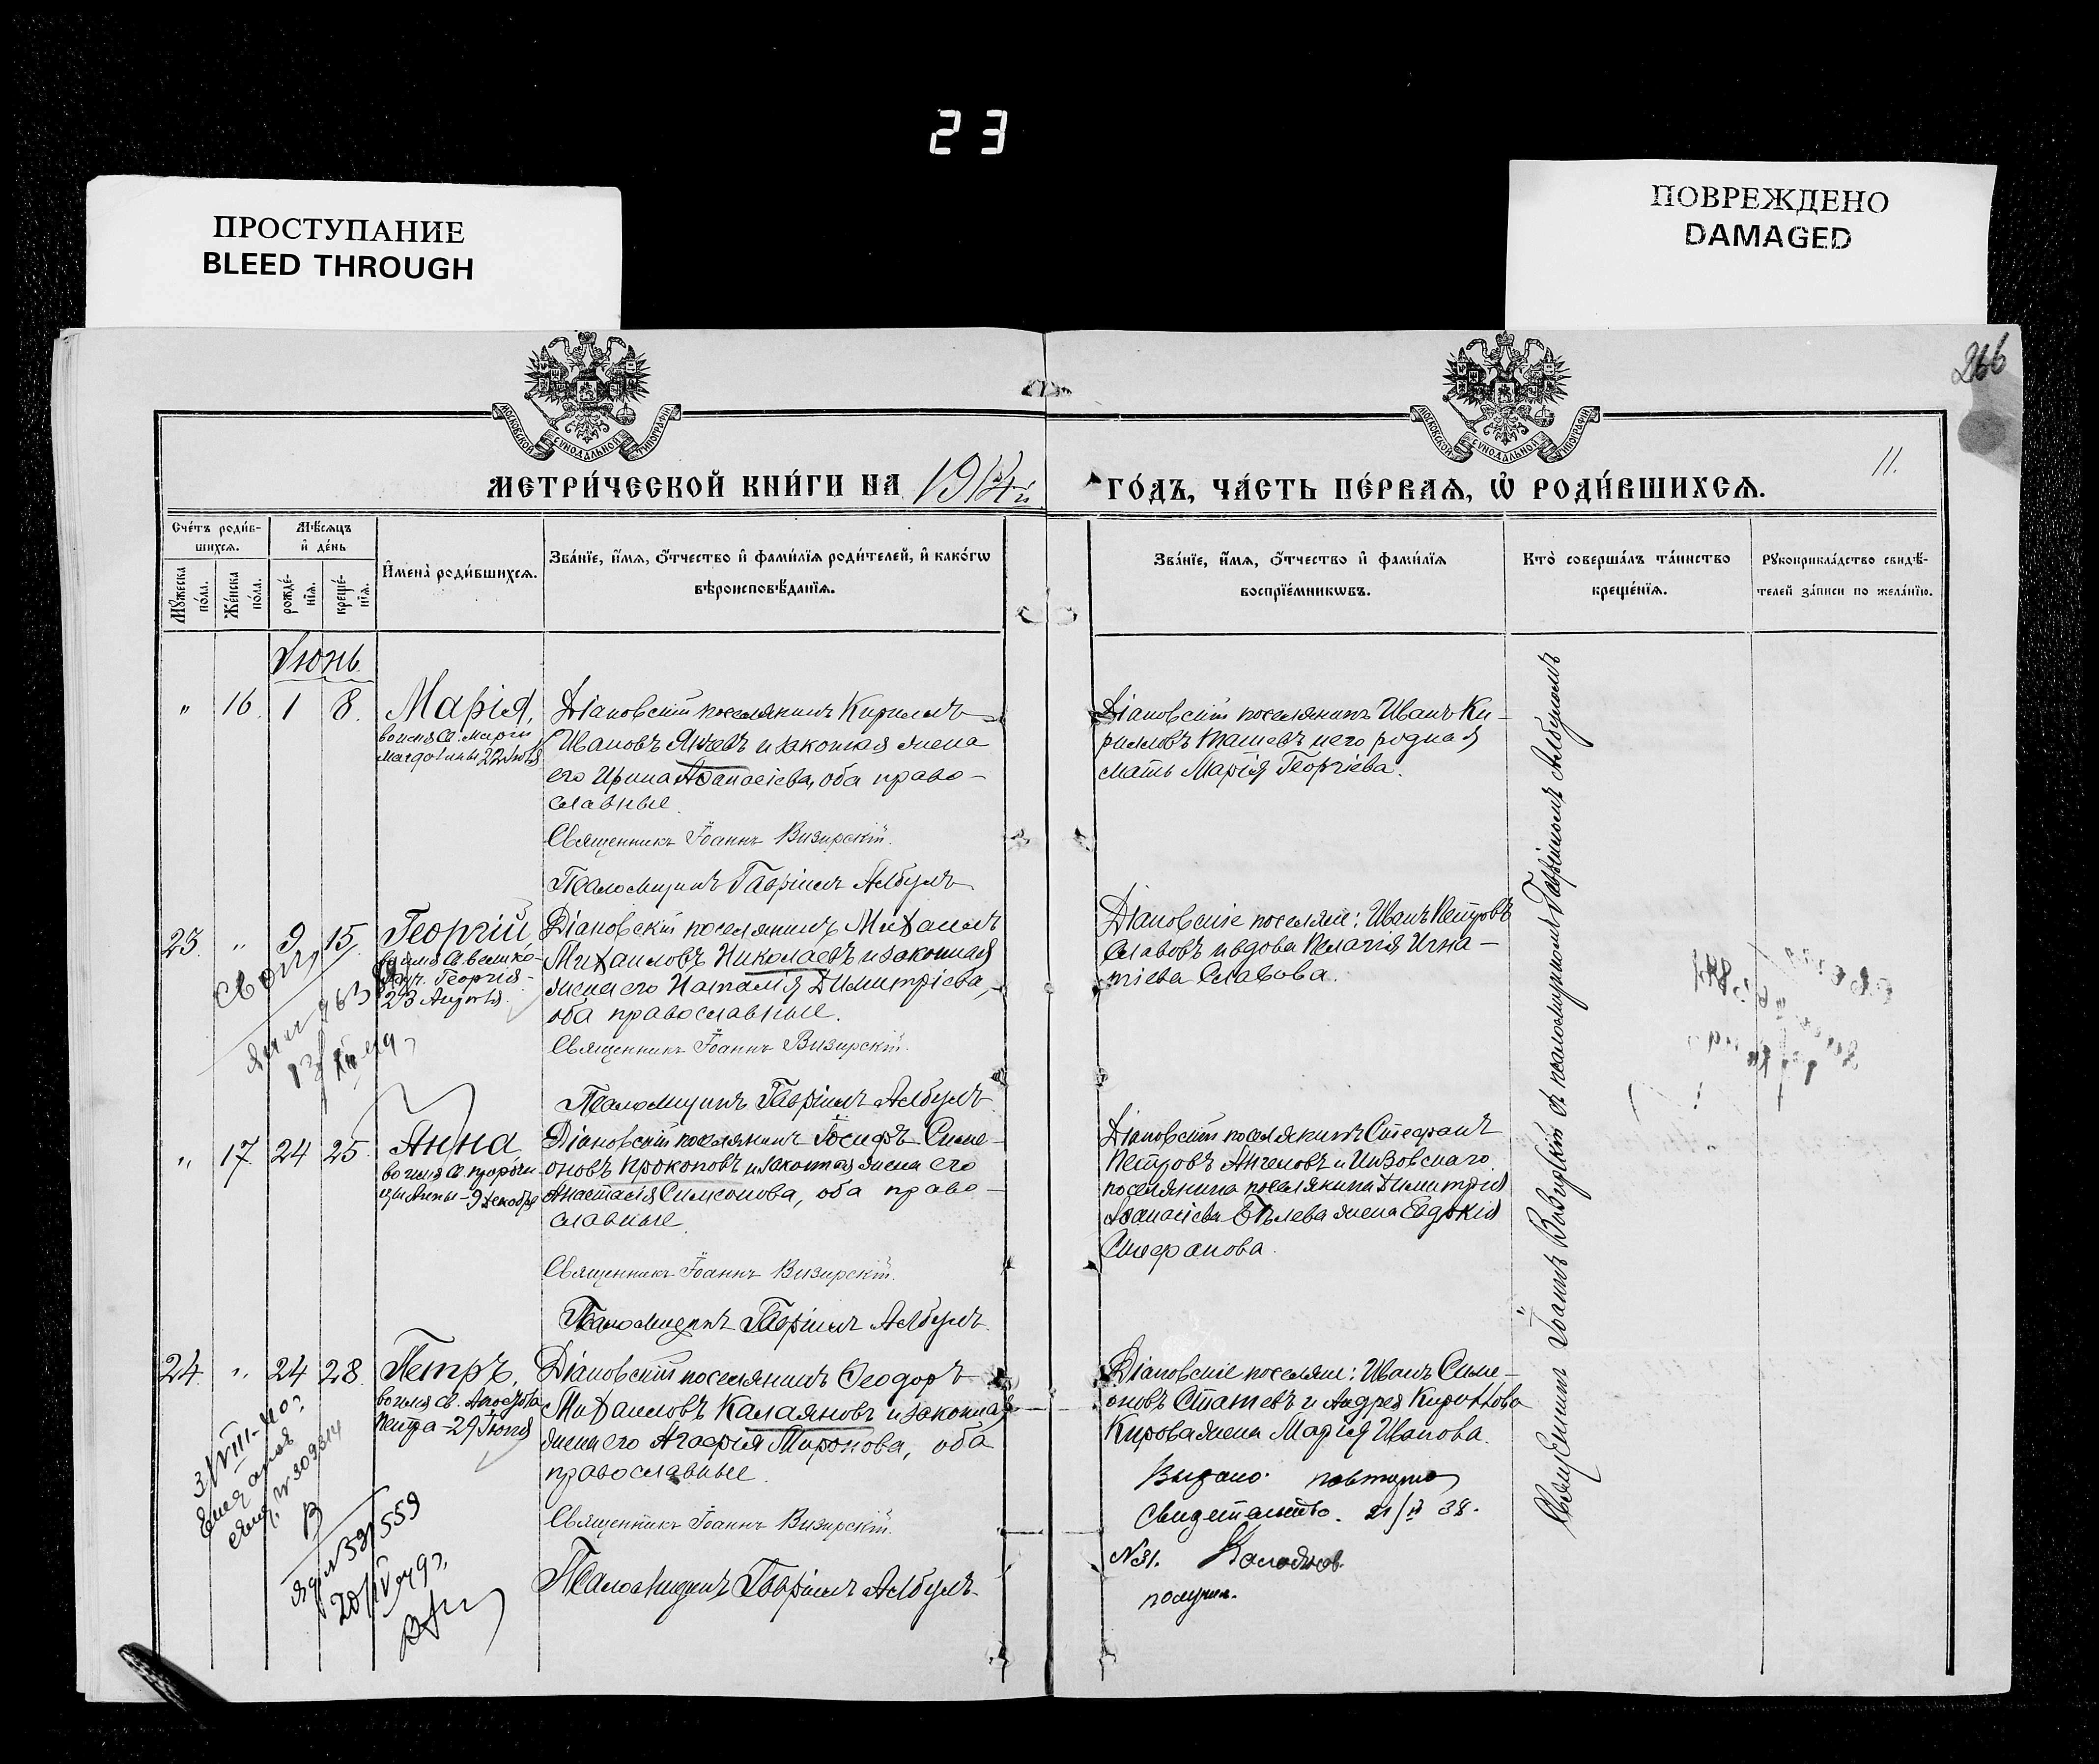 23
ПРОСТУПАНИЕ
BLEED THROUGH
ПОВРЕЖДЕНО
DAMAGED
266
МОСКОВСКОЙ СУНОДАЛЬНОЙ ТИПОГРАФІИ
МОСКОВСКОЙ СУНОДАЛЬНОЙ ТИПОГРАФІИ
11.
МЕТРИ́ЧЕСКОЙ КНИ́ГИ НА 1914й
ГО́ДЪ, ЧА́СТЬ ПЕ́РВАЯ, Ѡ РОДИ́ВШИХСЯ.
Сче́тъ роди́в-
шихся.
Мѣсяцъ
и де́нь
Мꙋжеска по́ла.
Же́нска по́ла.
рожде́-
нїя.
креще́-
нїя.
Имена̀ роди́вшихся.
Зва́нїе, и́мя, ѻ́тчество и фами́лїя роди́телей, и како́гѡ
вѣроисповѣ́данїя.
Зва́нїе, и́мя, ѻ́тчество и фами́лїя
воспрїе́мникѡвъ.
Кто̀ соверша́лъ та́инство
креще́нїя.
Рꙋкоприкла́дство свидѣ́-
телей за́писи по жела́нїю.
Іюнь
" 16. 1 8. Марія,
во имя Св. Маріи
Магдалины 22 Іюля
Діановскій поселянинъ Кириллъ
Ивановъ Ячевъ и законная жена
его Ирина Аѳанасіева, оба право-
славные.
Священникъ Іоаннъ Визирскій.
Псаломщикъ Гавріилъ Албулъ
Діановскій поселянинъ Иванъ Ки-
рилловъ и его родная
мать Марія Георгіева.
23. " 9 15. Георгій,
во имя Св. велико-
муч. Георгія
23 Апрѣля.
Діановскій поселянинъ Михаилъ
Михаиловъ Николаевъ и законная
жена его Наталія Димитріева,
оба православные.
Священникъ Іоаннъ Визирскій.
Псаломщикъ Гавріилъ Албулъ
Діановскіе поселяне: Иванъ Петровъ
Славовъ и вдова Пелагія Игна-
тіева Славова.
" 17. 24 25. Анна,
во имя Св. пророчи-
цы Анны - 9 Декабря
Діановскій поселянинъ Іосифъ Симе-
оновъ Прокоповъ и законная жена его
Анастасія Симеонова, оба право-
славные.
Священникъ Іоаннъ Визирскій.
Псаломщикъ Гавріилъ Албулъ
Діановскій поселянинъ Стефанъ
Петровъ Ангеловъ и
поселянина поселянина Димитрія
Аѳанасіева жена Евдокія
Стефанова.
24. " 24 28. Петръ,
во имя Св. Апостола
Петра - 29 Іюня
Діановскій поселянинъ Ѳеодоръ
Михаиловъ Калаяновъ и законная
жена его Агафія Миронова, оба
православные.
Священникъ Іоаннъ Визирскій.
Псаломщикъ Гавріилъ Албулъ
Діановскіе поселяне: Иванъ Симе-
оновъ Статевъ и Андрея
Кирова жена Марія Иванова.
Выдано повторно
свидетельство. 21/II 38.
N31.
получил.
Священникъ Іоаннъ Визирскій съ псаломщикомъ Гавріиломъ Албуломъ